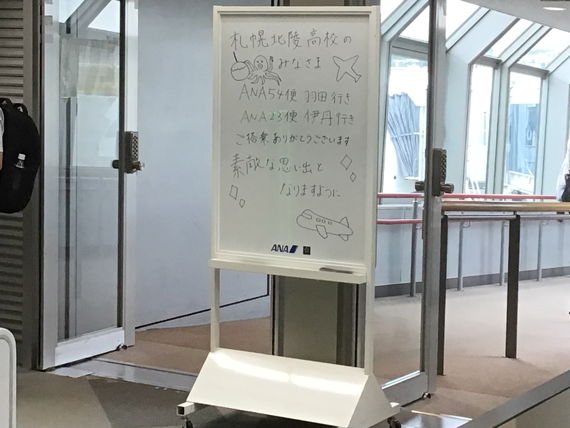 札幌北陵高校の
みなさま
ANA54便 羽田行き
ANA23便 伊丹行き
ご搭乗ありがとうございます
素敵な思い出と
なりますように
ANA